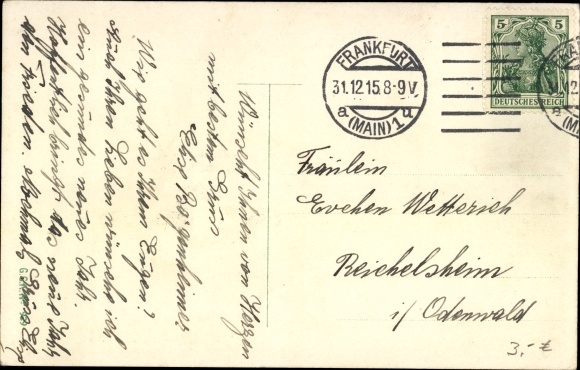 Wünscht Ihnen von Herzen
mit bestem Gruss
Else
Wie geht es Ihrem Eugen?
Auch Ihren Lieben wünsche ich
ein gesundes neues Jahr.
Hoffentlich bringt das neue Jahr
den Frieden. Nochmals Gruss Else
FRANKFURT
31.12.15.8-9V.
a (MAIN) 1 u
5 5
DEUTSCHES REICH
Fräulein
Evchen Wetterich
Reichelsheim
i/ Odenwald
3,- €